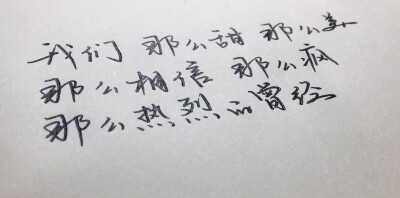 我们 那么甜 那么美
那么相信 那么疯
那么热烈的曾经